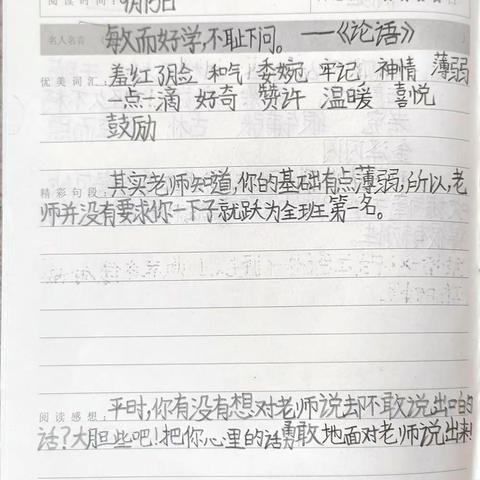 阅读时间：9月15日
名人名言 敏而好学，不耻下问。——《论语》
优美词汇：羞红了脸 和气 委婉 牢记 神情 薄弱
一点一滴 好奇 赞许 温暖 喜悦
鼓励
精彩句段：其实老师知道，你的基础有点薄弱，所以，老
师并没有要求你一下子就跃为全班第一名。
阅读感想：平时，你有没有想对老师说却不敢说出口的
话？大胆些吧！把你心里的话勇敢地面对老师说出来！